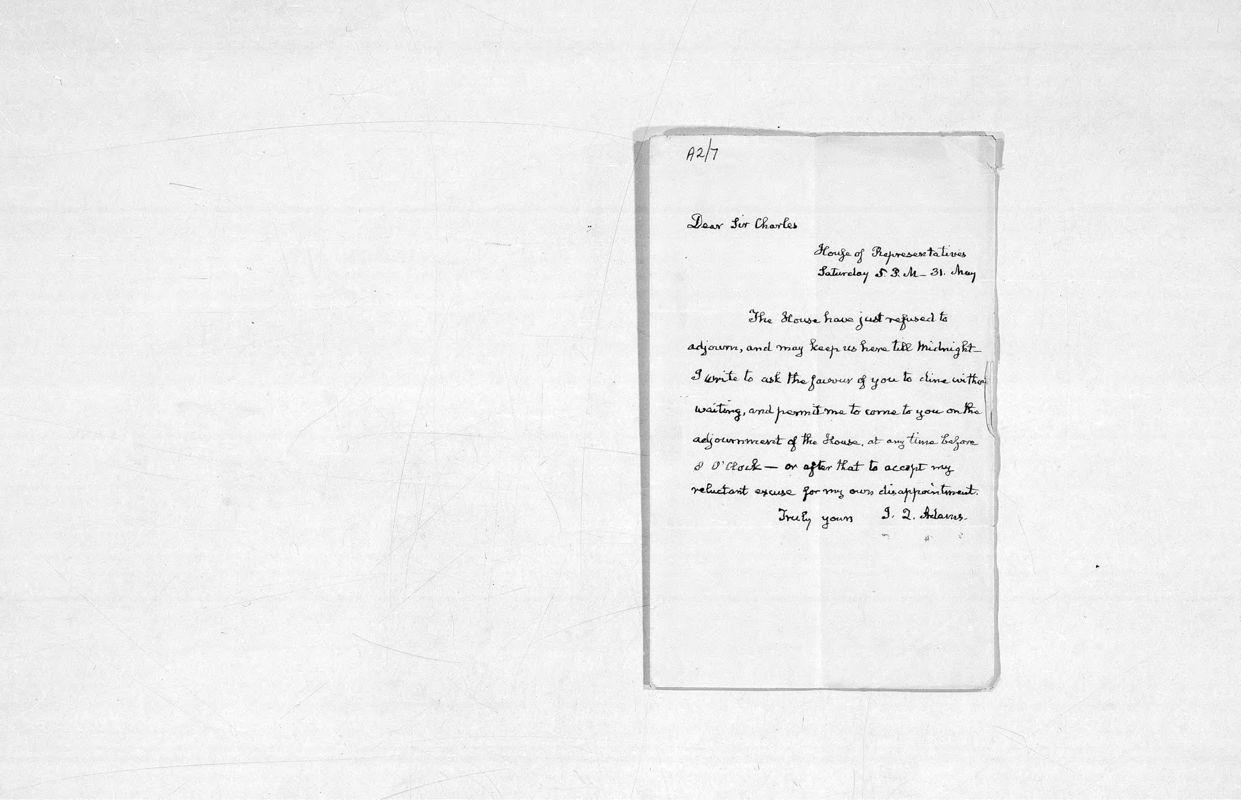 A2/7
Dear Sir Charles
House of Representatives
Saturday 5 P. M - 31. May
The House have just refused to
adjourn, and may keep us here till Midnight -
I write to ask the favour of you to dine withou
waiting, and permit me to come to you on the
adjournment of the House, at any time before
8 O'Clock — or after that to accept my
reluctant excuse for my own disappointment.
Truly yours J. Q. Adams.